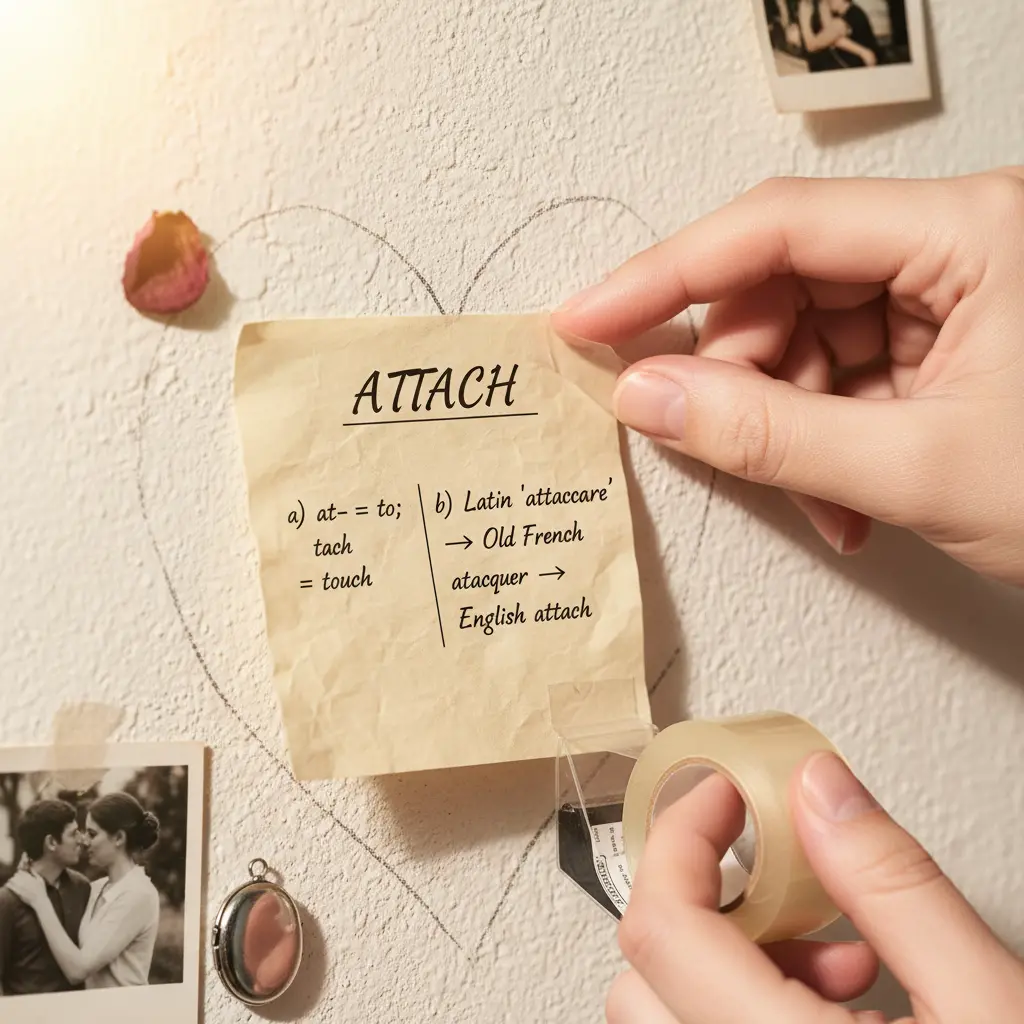 ATTACH
a) at- = to;
tach
= touch
b) Latin 'attaccare'
→ Old French
atacquer →
English attach